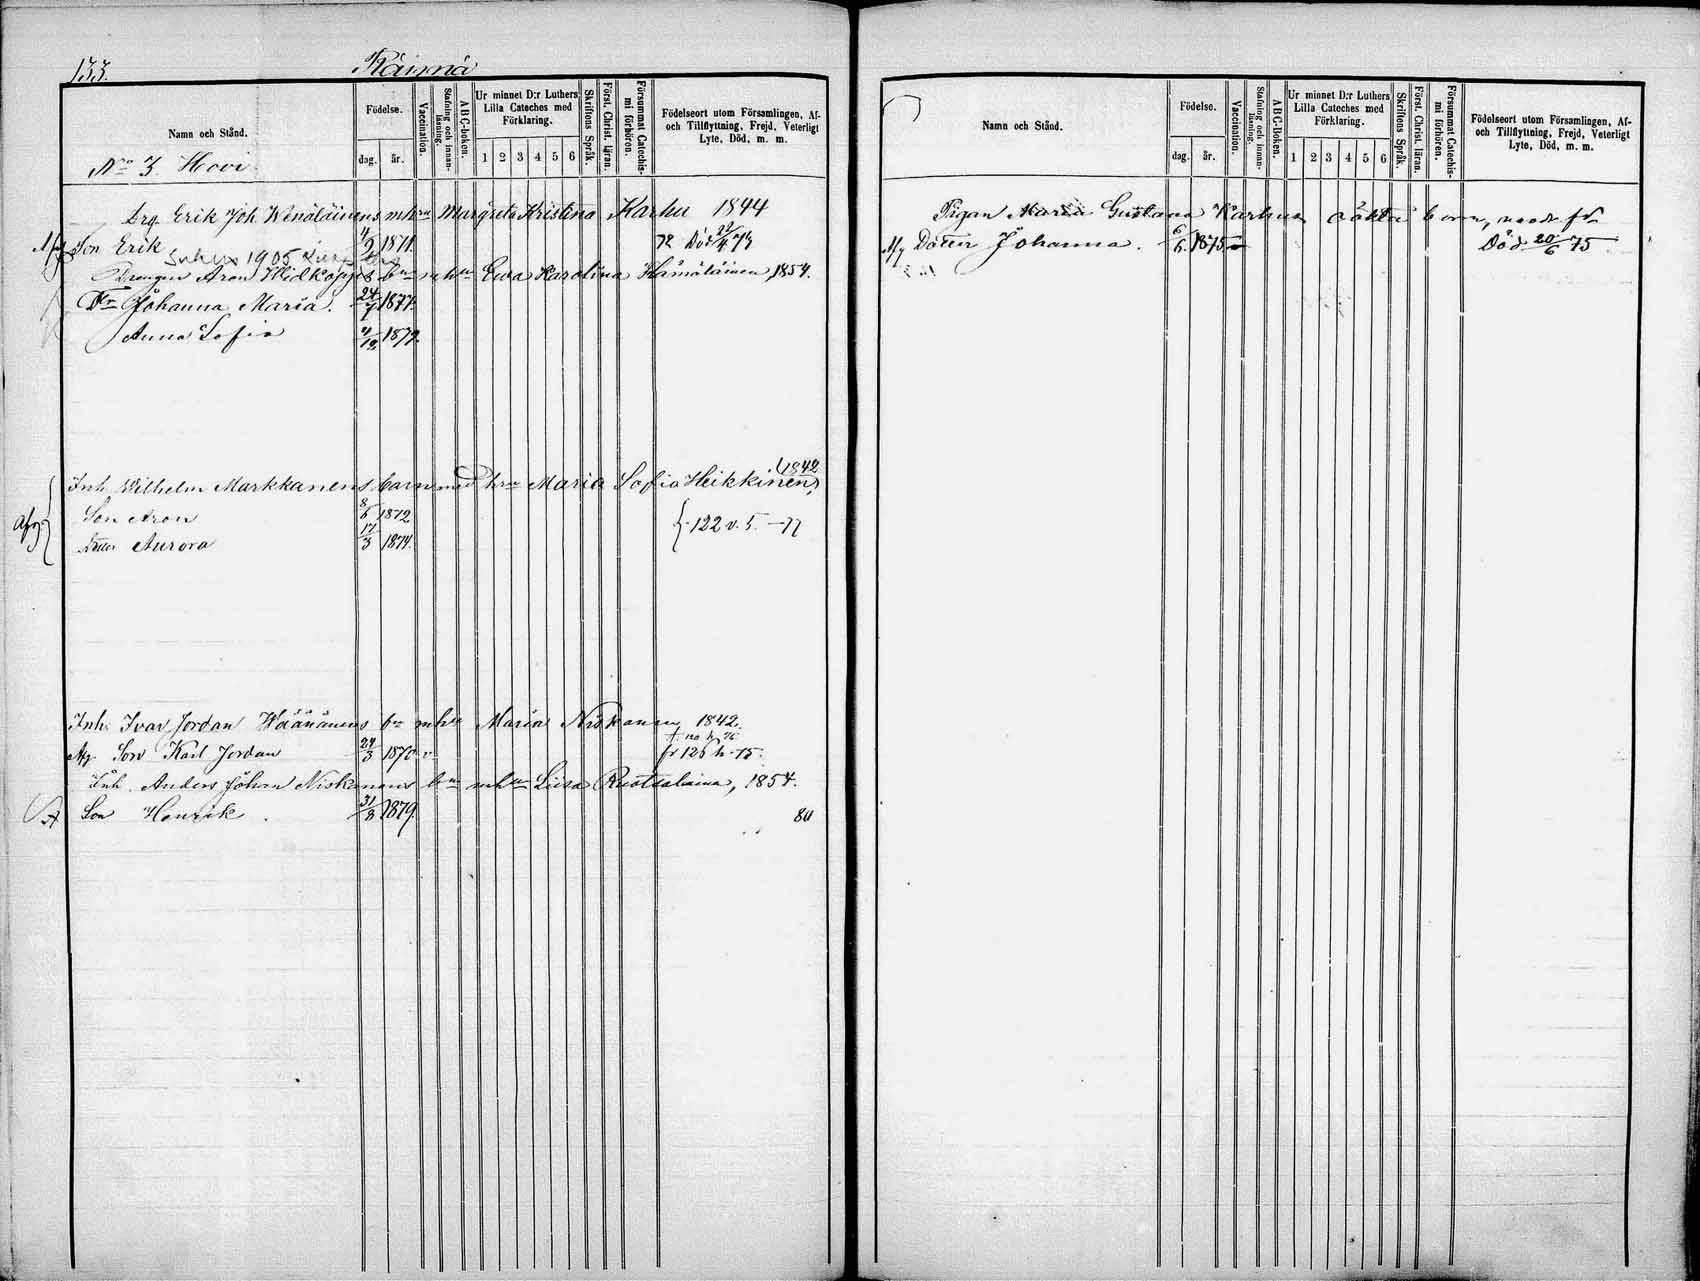 133.
Räimä
Namn och Stånd.
Födelse.
dag. år.
Vaccination.
Stafning och innanläsning.
A B C-boken.
Ur minnet D:r Luthers Lilla Cateches med Förklaring.
1 2 3 4 5 6
Skriftens Språk.
Först. Christ. läran.
Försummat Catechismi förhören.
Födelseort utom Församlingen, Af- och Tillflyttning, Frejd, Veterligt Lyte, Död, m. m.
No 3. Hovi
Drg. Erik Joh. Wenäläinens mhru Margreta Kristina Karhu 1844
Son Erik 4/2 1871. 72 Död 22/4 73
1905
Drengen Aron bn mhu Ewa Karolina Hämäläinen, 1854.
Dr Johanna Maria. 24/7 1877.
Anna Sofia 4/12 1879.
Inh. Wilhelm Markkanens barn med hru Maria Sofia Heikkinen, 1842
Afg. Son Aron 8/6 1872
Dotter Aurora 17/3 1874. 122 v. 5. –77
Inh. Ivar Jordan Väänänens bn mhu Maria Niskanen 1842.
Afg. Son Karl Jordan 24/3 1870 v. fr 126 h -75.
Inh. Anders Johan Niskanens bn mhu Liisa Ruotsalaina, 1854.
Son Henrik. 31/3 1879. 80
Namn och Stånd.
Födelse.
dag. år.
Vaccination.
Stafning och innanläsning.
A B C-Boken.
Ur minnet D:r Luthers Lilla Cateches med Förklaring.
1 2 3 4 5 6
Skriftens Språk.
Först. Christ. läran.
Försummat Catechismi förhören.
Födelseort utom Församlingen, Af- och Tillflyttning, Frejd, Veterligt Lyte, Död, m. m.
Pigan Maria Gustava Karhus oäkta barn,
Afg Dotter Johanna. 6/6 1875. Död 20/6 75